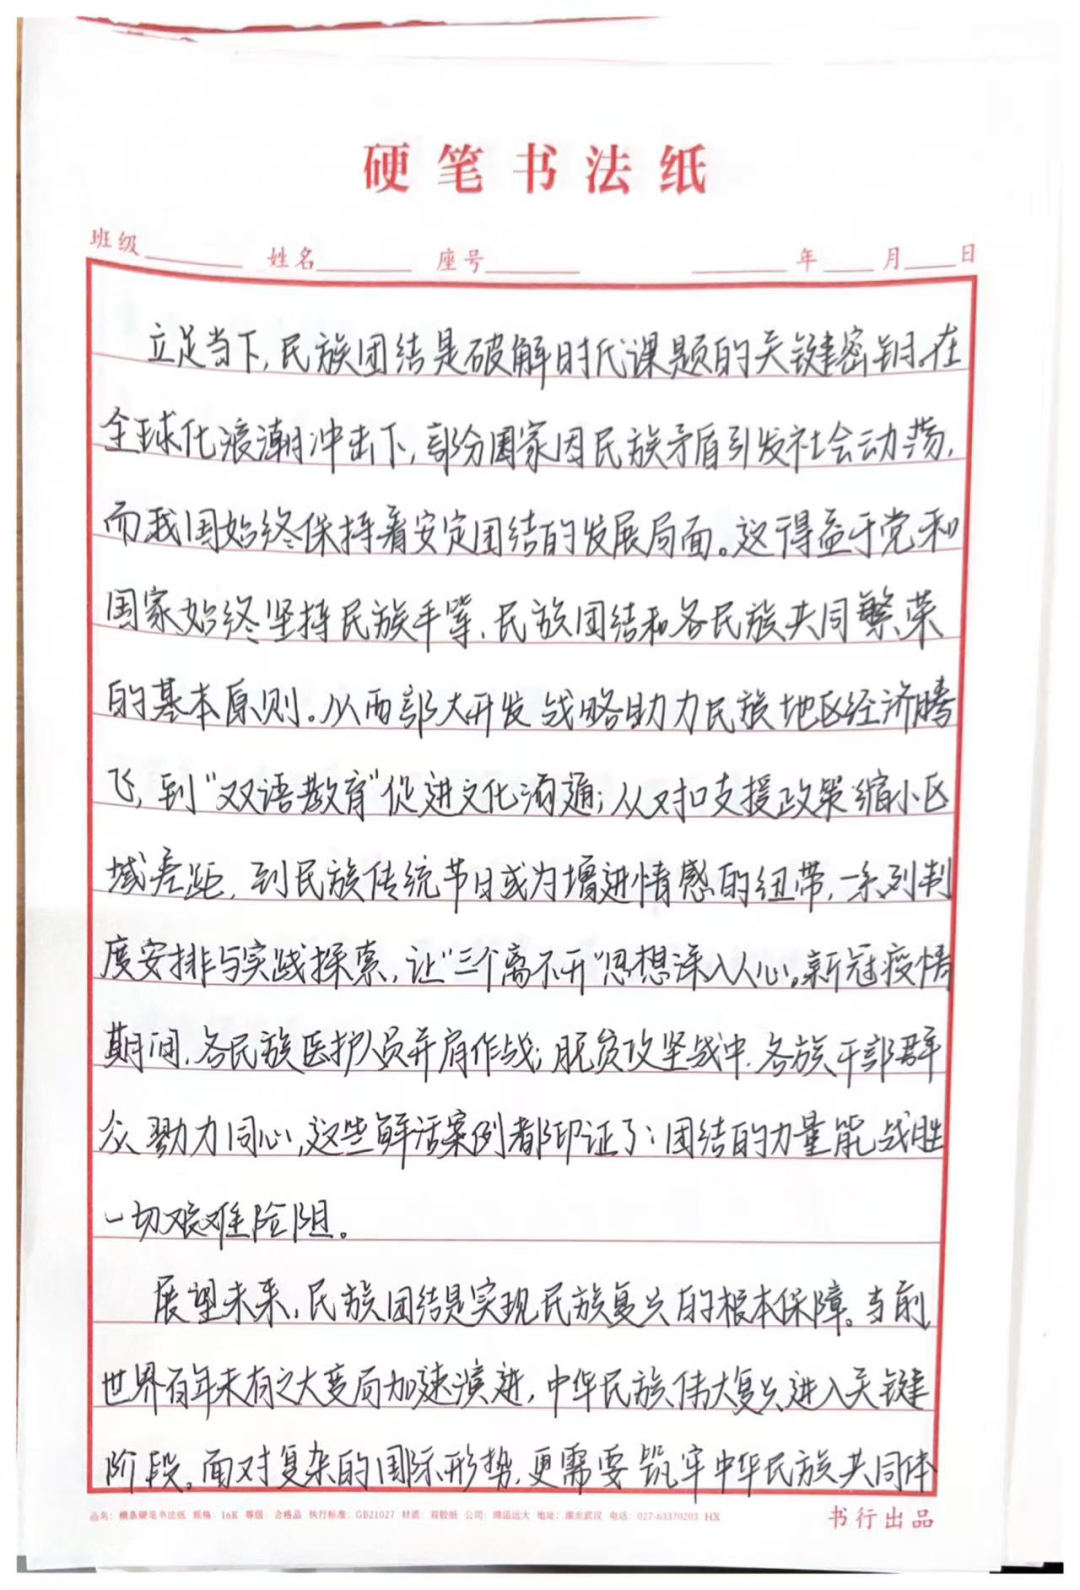 硬笔书法纸
班级 姓名 座号 年 月 日
立足当下，民族团结是破解时代课题的关键密钥。在
全球化浪潮冲击下，部分国家因民族矛盾引发社会动荡，
而我国始终保持着安定团结的发展局面。这得益于党和
国家始终坚持民族平等、民族团结和各民族共同繁荣
的基本原则。从西部大开发战略助力民族地区经济腾
飞，到“双语教育”促进文化沟通；从对口支援政策缩小区
域差距，到民族传统节日成为增进情感的纽带，一系列制
度安排与实践探索，让“三个离不开”思想深入人心。新冠疫情
期间，各民族医护人员并肩作战；脱贫攻坚战中，各族干部群
众勠力同心，这些鲜活案例都印证了：团结的力量能战胜
一切艰难险阻。
展望未来，民族团结是实现民族复兴的根本保障。当前
世界百年未有之大变局加速演进，中华民族伟大复兴进入关键
阶段。面对复杂的国际形势，更需要筑牢中华民族共同体
品名：横条硬笔书法纸 规格：16K 等级：合格品 执行标准：GB21027 材质：双胶纸 公司：鸿运远大 地址：湖北武汉 电话：027-63370203 HX
书行出品